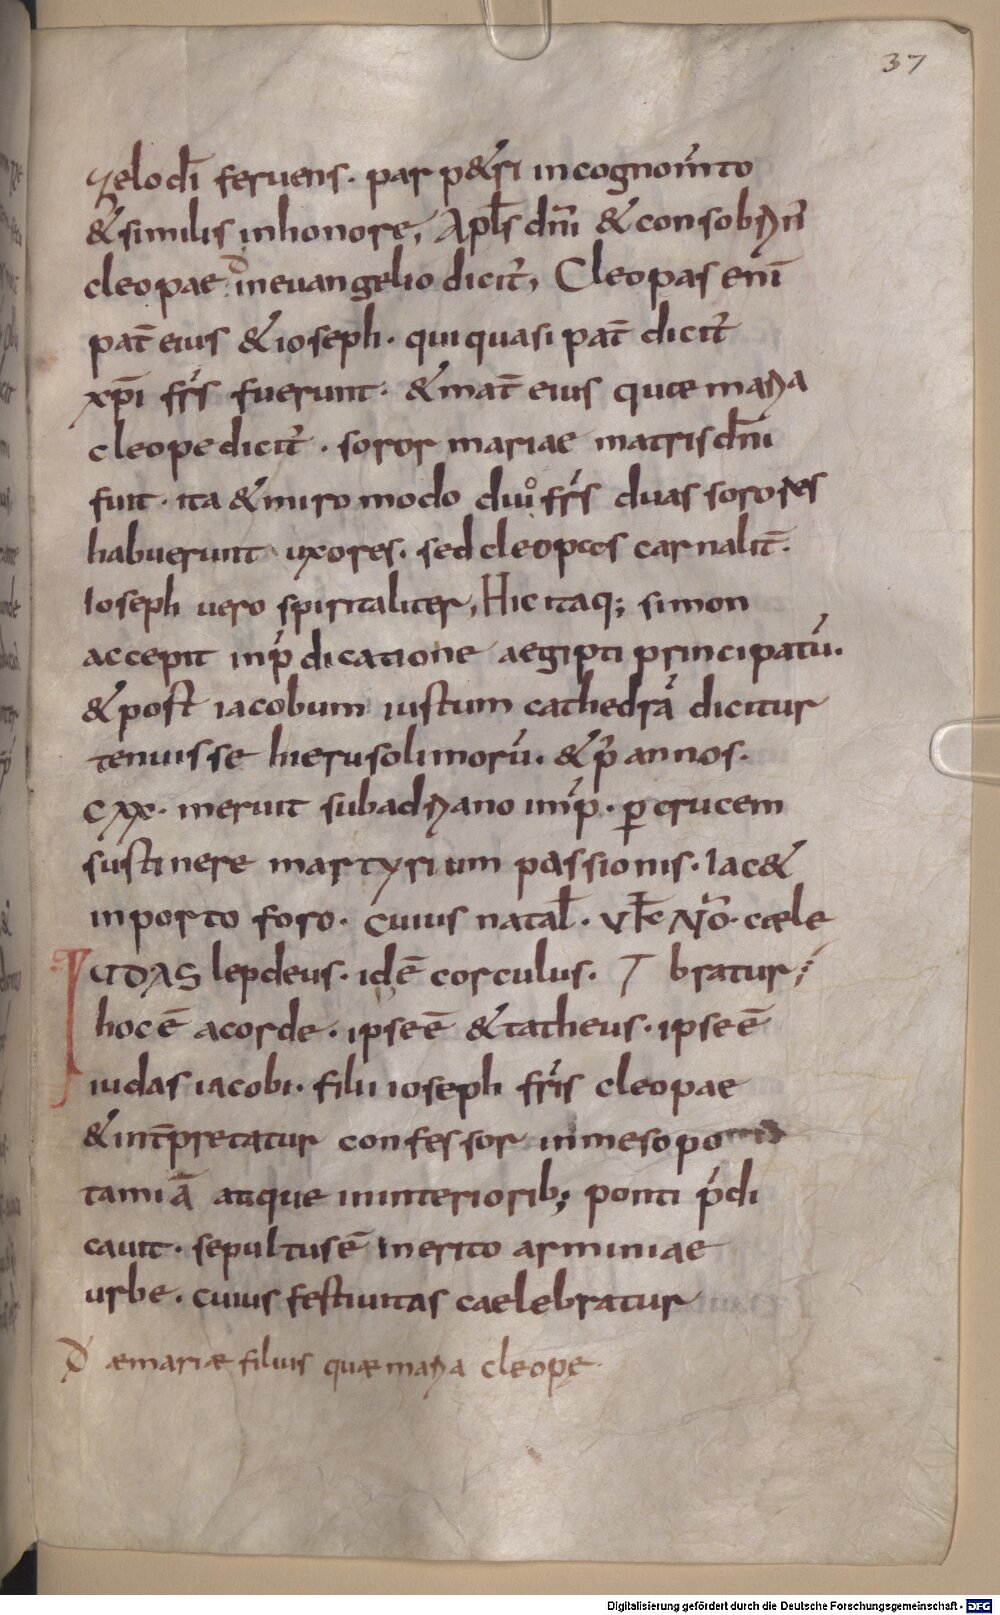 37
zelo dī feruens. par p&ri in cognom̄to
& similis in honore, Apl̄s dn̄i & consobrin'
cleopae in euangelio dicit', Cleopas eni̅
pat̄ eius & ioseph. qui quasi pat̄ dicit'
xp̄i fr̄s fuerunt. & mat̄ eius quae maria
cleope dicit'. soror mariae matris dn̄i
fuit. ita & miro modo duo fr̄s duas sorores
habuerunt uxores. sed cleopas carnalit̄.
Ioseph uero spiritaliter, Hic itaq; simon
accepit in p̄dicatione aegipti principatū.
& post iacobum iustum cathedrā dicitur
tenuisse hierusolimorū. & p̄ annos.
cxx. meruit sub adriano imp̄. ꝑ crucem
sustinere martyrium passionis. Iac&
in porto foro. cuius natal̄. v kł No̅. caele
IUDAS lepdeus. idē corculus. bratur;
hoc ē a corde. ipse ē & tatheus. ipse ē
iudas iacobi. filii ioseph fr̄is cleopae
& int̄pretatur confessor in mesopo
tamiā atque in interiorib; ponti p̄di
cauit. sepultus ē merito arminiae
urbe. cuius festiuitas caelebratur
đ aemariae filius quae maria cleopę.
Digitalisierung gefördert durch die Deutsche Forschungsgemeinschaft - DFG